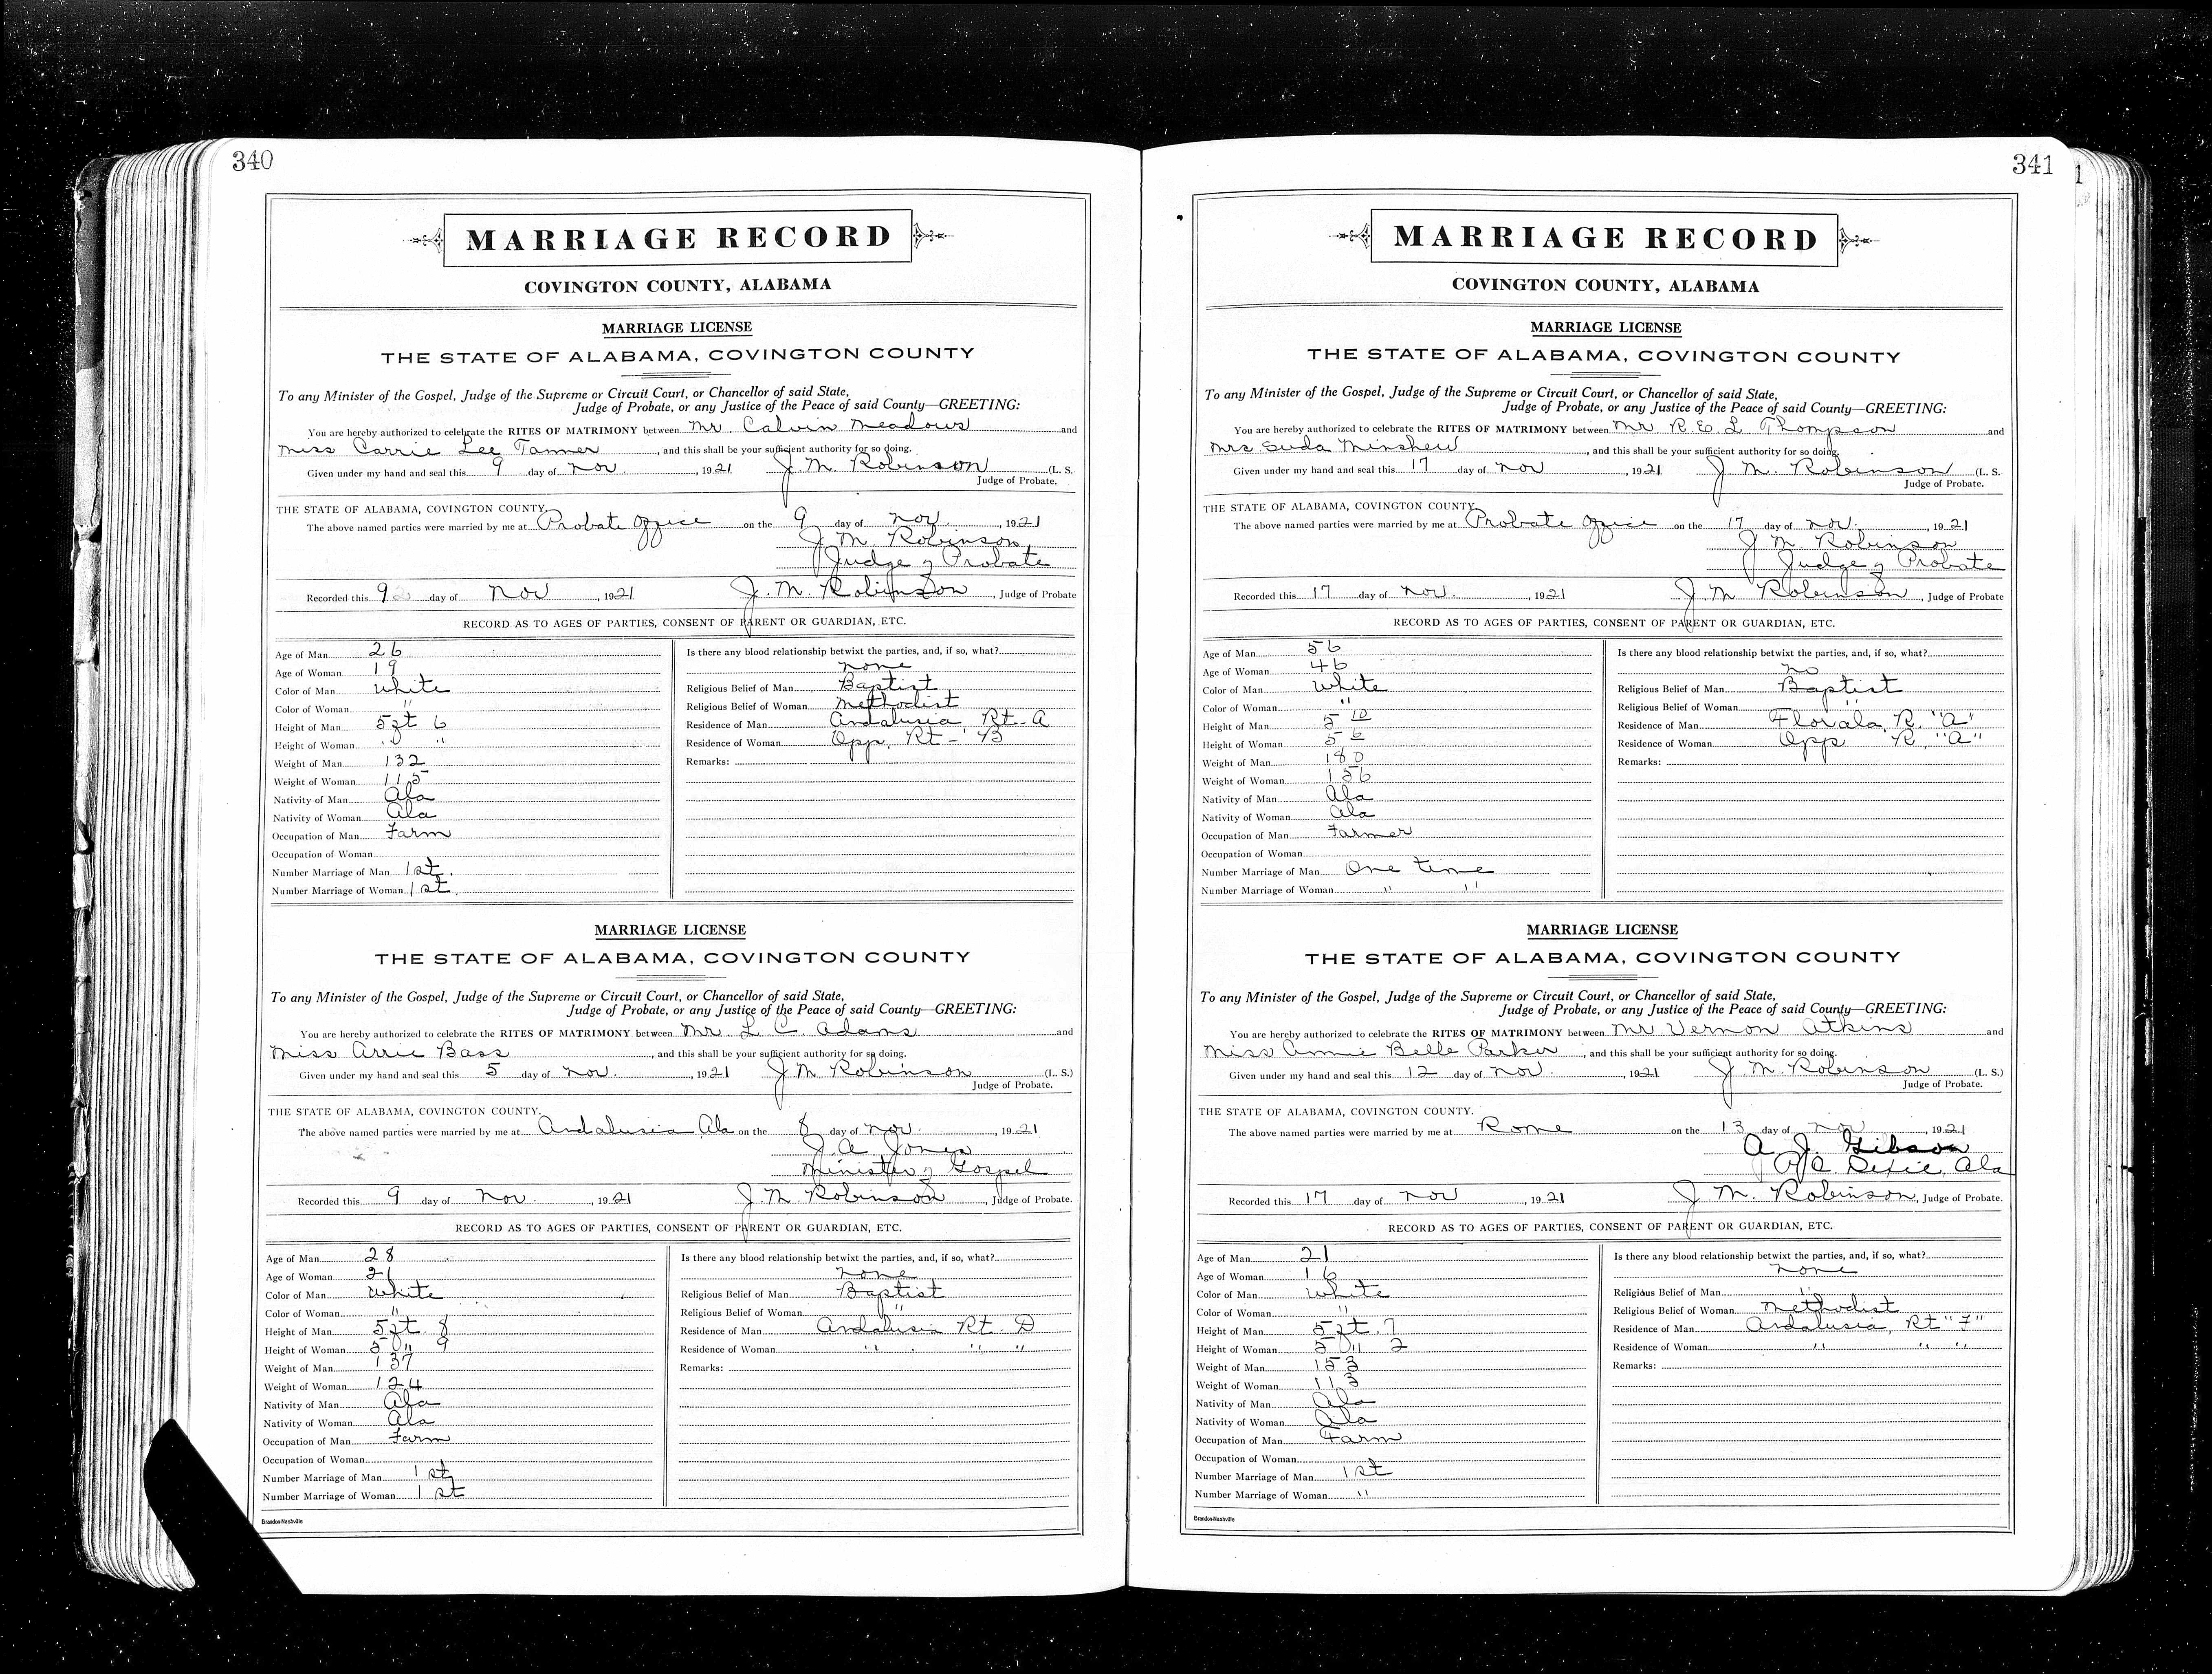 340
MARRIAGE RECORD
COVINGTON COUNTY, ALABAMA
MARRIAGE LICENSE
THE STATE OF ALABAMA, COVINGTON COUNTY
To any Minister of the Gospel, Judge of the Supreme or Circuit Court, or Chancellor of said State,
Judge of Probate, or any Justice of the Peace of said County—GREETING:
You are hereby authorized to celebrate the RITES OF MATRIMONY between Mr. Calvin Meadows and
Miss Carrie Lee Tanner, and this shall be your sufficient authority for so doing.
Given under my hand and seal this 9 day of Nov, 1921 J. M. Robinson (L. S.
Judge of Probate.
THE STATE OF ALABAMA, COVINGTON COUNTY.
The above named parties were married by me at Probate Office on the 9 day of Nov. 1921
J. M. Robinson
Judge of Probate
Recorded this 9 day of Nov, 1921 J. M. Robinson, Judge of Probate
RECORD AS TO AGES OF PARTIES, CONSENT OF PARENT OR GUARDIAN, ETC.
Age of Man 26
Age of Woman 19
Color of Man White
Color of Woman "
Height of Man 5 ft 6
Height of Woman " "
Weight of Man 132
Weight of Woman 115
Nativity of Man Ala
Nativity of Woman Ala
Occupation of Man Farm
Occupation of Woman
Number Marriage of Man 1st.
Number Marriage of Woman 1st.
Is there any blood relationship betwixt the parties, and, if so, what?
none
Religious Belief of Man Baptist
Religious Belief of Woman Methodist
Residence of Man Andalusia Rt. A
Residence of Woman Opp, Rt - B
Remarks:
MARRIAGE LICENSE
THE STATE OF ALABAMA, COVINGTON COUNTY
To any Minister of the Gospel, Judge of the Supreme or Circuit Court, or Chancellor of said State,
Judge of Probate, or any Justice of the Peace of said County—GREETING:
You are hereby authorized to celebrate the RITES OF MATRIMONY between Mr. L C. Adams and
Miss Arrie Bass, and this shall be your sufficient authority for so doing.
Given under my hand and seal this 5 day of Nov. 1921 J M Robinson (L. S.)
Judge of Probate.
THE STATE OF ALABAMA, COVINGTON COUNTY.
The above named parties were married by me at Andalusia Ala on the 8 day of Nov. 1921
J. A. Jones
Minister of Gospel
Recorded this 9 day of Nov. 1921 J M Robinson, Judge of Probate.
RECORD AS TO AGES OF PARTIES, CONSENT OF PARENT OR GUARDIAN, ETC.
Age of Man 28
Age of Woman 21
Color of Man White
Color of Woman "
Height of Man 5 ft. 8
Height of Woman 5 " 9
Weight of Man 137
Weight of Woman 124
Nativity of Man Ala
Nativity of Woman Ala
Occupation of Man Farm
Occupation of Woman
Number Marriage of Man 1st
Number Marriage of Woman 1st
Is there any blood relationship betwixt the parties, and, if so, what?
none
Religious Belief of Man Baptist
Religious Belief of Woman "
Residence of Man Andalusia Rt. D
Residence of Woman " " "
Remarks:
Brandon-Nashville
341
MARRIAGE RECORD
COVINGTON COUNTY, ALABAMA
MARRIAGE LICENSE
THE STATE OF ALABAMA, COVINGTON COUNTY
To any Minister of the Gospel, Judge of the Supreme or Circuit Court, or Chancellor of said State,
Judge of Probate, or any Justice of the Peace of said County—GREETING:
You are hereby authorized to celebrate the RITES OF MATRIMONY between Mr R. E. L Thompson and
Mrs Suda Minshew, and this shall be your sufficient authority for so doing.
Given under my hand and seal this 17 day of Nov, 1921 J M. Robinson (L. S.
Judge of Probate.
THE STATE OF ALABAMA, COVINGTON COUNTY.
The above named parties were married by me at Probate Office on the 17 day of Nov. 1921
J M Robinson
Judge of Probate
Recorded this 17 day of Nov. 1921 J M Robinson, Judge of Probate
RECORD AS TO AGES OF PARTIES, CONSENT OF PARENT OR GUARDIAN, ETC.
Age of Man 56
Age of Woman 46
Color of Man White
Color of Woman "
Height of Man 5 10
Height of Woman 5 6
Weight of Man 180
Weight of Woman 156
Nativity of Man Ala
Nativity of Woman Ala
Occupation of Man Farmer
Occupation of Woman
Number Marriage of Man One time
Number Marriage of Woman " "
Is there any blood relationship betwixt the parties, and, if so, what?
no
Religious Belief of Man Baptist
Religious Belief of Woman "
Residence of Man Florala, R. "A"
Residence of Woman Opp R. "A"
Remarks:
MARRIAGE LICENSE
THE STATE OF ALABAMA, COVINGTON COUNTY
To any Minister of the Gospel, Judge of the Supreme or Circuit Court, or Chancellor of said State,
Judge of Probate, or any Justice of the Peace of said County—GREETING:
You are hereby authorized to celebrate the RITES OF MATRIMONY between Mr Vernon Atkins and
Miss Annie Belle Parker, and this shall be your sufficient authority for so doing.
Given under my hand and seal this 12 day of Nov. 1921 J M. Robinson (L. S.)
Judge of Probate.
THE STATE OF ALABAMA, COVINGTON COUNTY.
The above named parties were married by me at Rome on the 13 day of Nov, 1921
A. J. Gibson
Dixie, Ala
Recorded this 17 day of Nov, 1921 J M. Robinson, Judge of Probate.
RECORD AS TO AGES OF PARTIES, CONSENT OF PARENT OR GUARDIAN, ETC.
Age of Man 21
Age of Woman 16
Color of Man White
Color of Woman "
Height of Man 5 ft. 7
Height of Woman 5 " 2
Weight of Man 153
Weight of Woman 113
Nativity of Man Ala
Nativity of Woman Ala
Occupation of Man Farm
Occupation of Woman
Number Marriage of Man 1st
Number Marriage of Woman "
Is there any blood relationship betwixt the parties, and, if so, what?
none
Religious Belief of Man "
Religious Belief of Woman Methodist
Residence of Man Andalusia, Rt "F"
Residence of Woman " " "
Remarks:
Brandon-Nashville